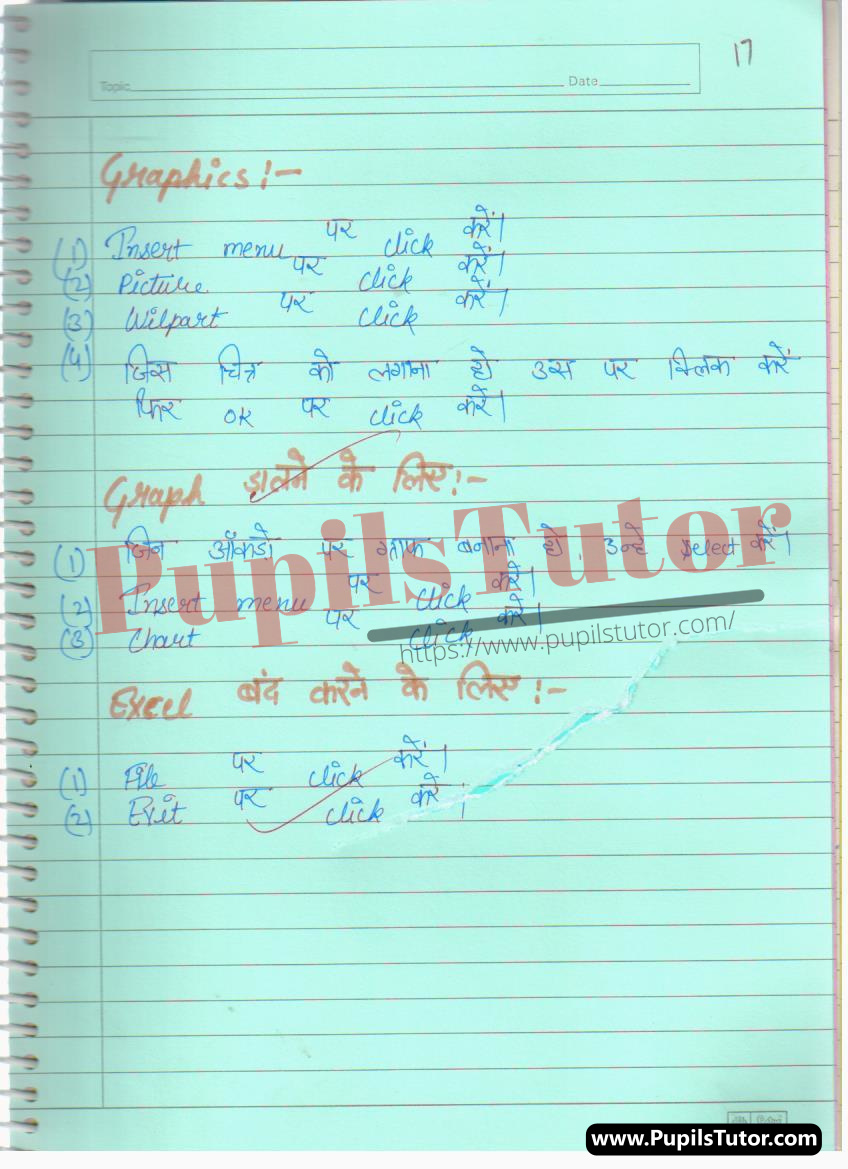 17
Topic Date
Graphics:-
(1) Insert menu पर click करें।
(2) Picture पर click करें।
(3) Wilpart पर click करें।
(4) जिस चित्र को लगाना हो उस पर क्लिक करें
फिर OK पर click करें।
Graph डालने के लिए:-
(1) जिन आँकडो पर ग्राफ बनाना हो, उन्हे select करें।
(2) Insert menu पर click करें।
(3) Chart पर click करें।
PupilsTutor
https://www.pupilstutor.com/
Excel बंद करने के लिए:-
(1) File पर click करें।
(2) Exit पर click करें।
www.PupilsTutor.com